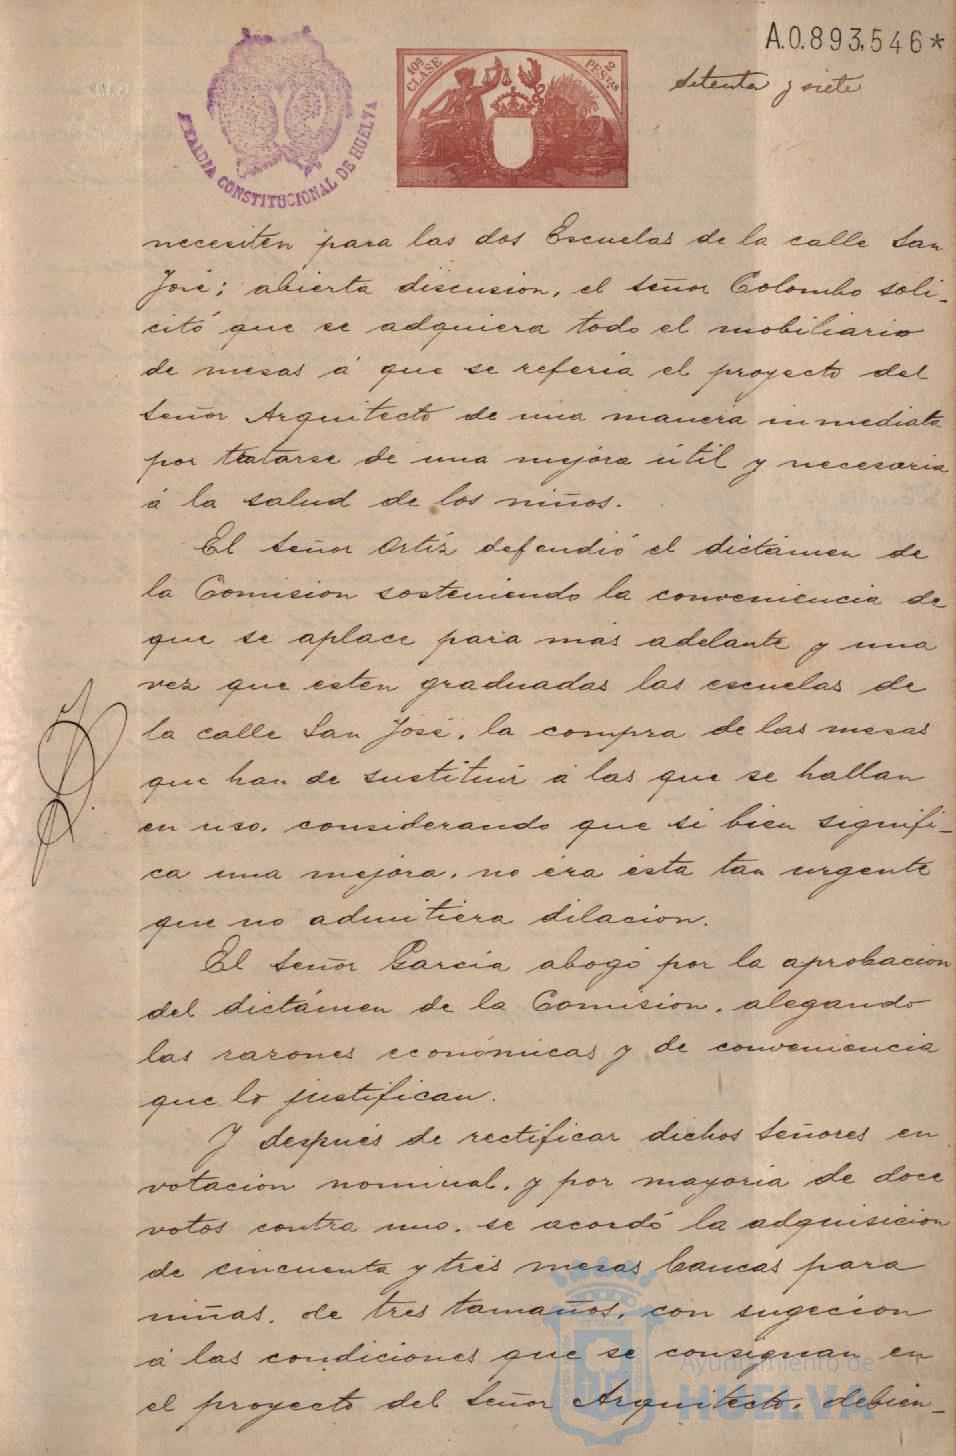 A.0.893,546*
Setenta y siete
10ª CLASE
2 PESETAS
ALCALDIA CONSTITUCIONAL DE HUELVA
necesiten para las dos Escuelas de la calle San
José; abierta discusion, el señor Colombo soli-
citó que se adquiera todo el mobiliario
de mesas á que se referia el proyecto del
señor Arquitecto de una manera inmediata
por tratarse de una mejora útil y necesaria
á la salud de los niños.
El señor Ortíz defendió el dictámen de
la Comision sosteniendo la conveniencia de
que se aplace para más adelante y una
vez que esten graduadas las escuelas de
la calle San José, la compra de las mesas
que han de sustituir á las que se hallan
en uso, considerando que si bien signifi-
ca una mejora, no éra ésta tan urgente
que no admitiera dilacion.
El señor García abogó por la aprobacion
del dictámen de la Comision, alegando
las razones económicas y de conveniencia
que lo justifican.
Y después de rectificar dichos señores en
votacion nominal, y por mayoria de doce
votos contra uno, se acordó la adquisicion
de cincuenta y tres mesas bancas para
niñas, de tres tamaños, con sugecion
á las condiciones que se consignan en
el proyecto del Señor Arquitecto, debien-
Ayuntamiento de
HUELVA